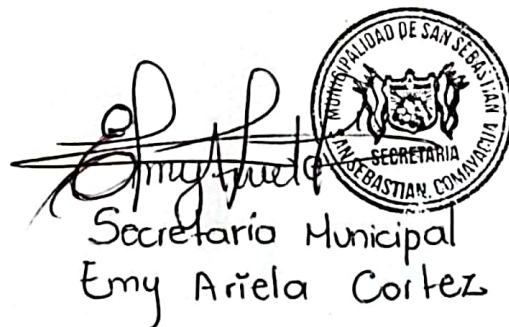 MUNICIPALIDAD DE SAN SEBASTIAN
SECRETARIA
SAN SEBASTIAN, COMAYAGUA
Secretaria Municipal
Emy Ariela Cortez